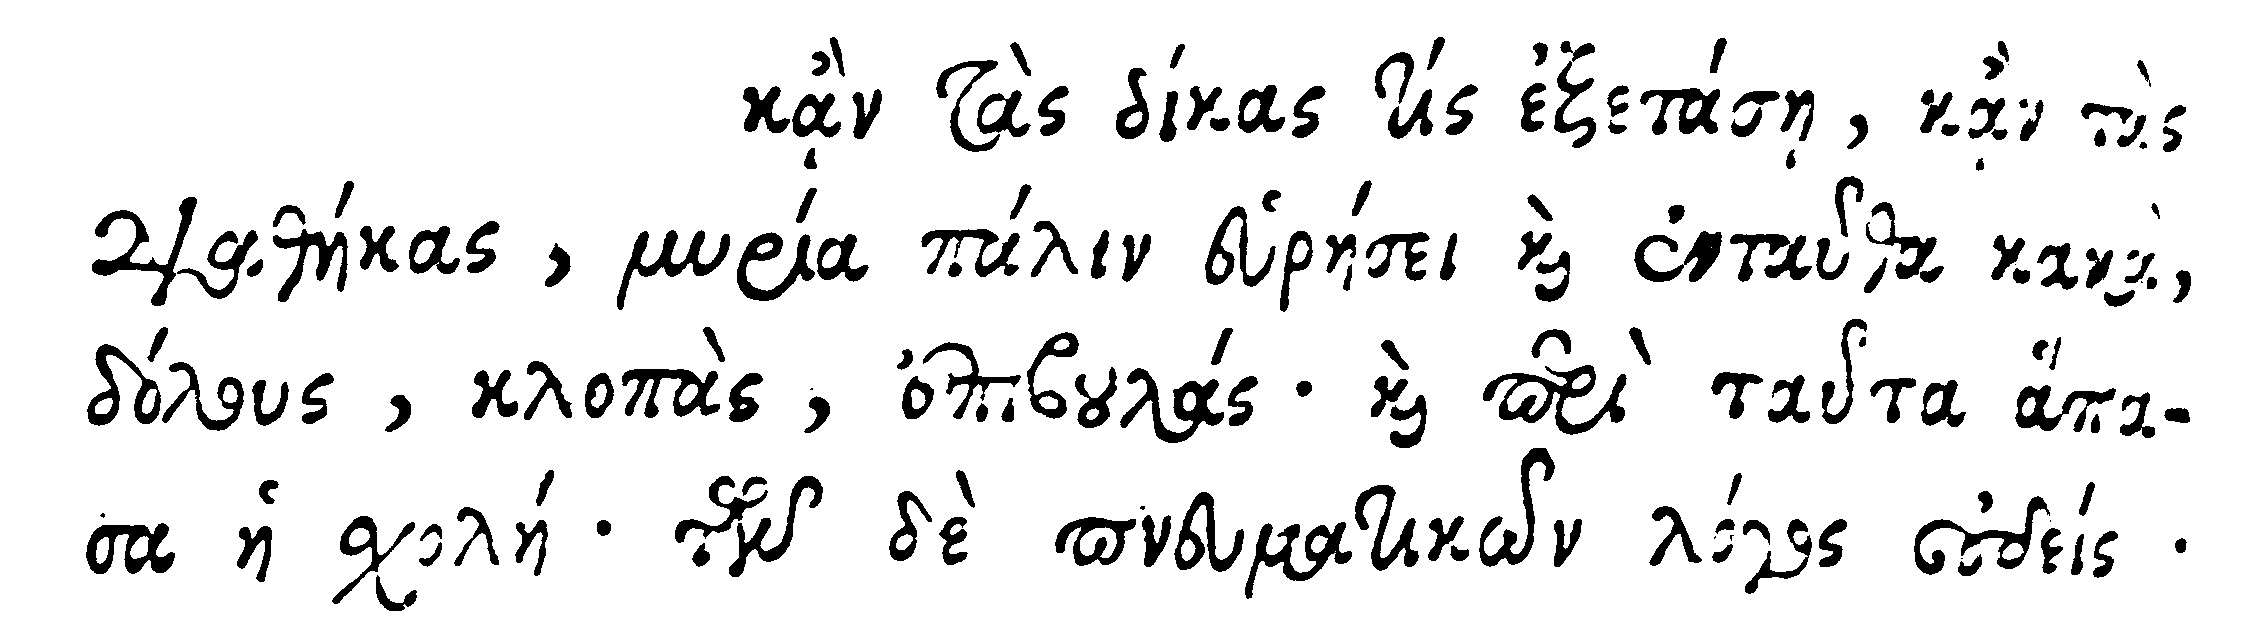 κᾂν τὰς δίκας τίς ἐξετάσῃ, κᾂν τὰς
διαθήκας, μυρία πάλιν εὑρήσει καὶ ἐνταῦθα κακὰ,
δόλους, κλοπὰς, ἐπιβουλάς· καὶ περὶ ταῦτα ἅπα-
σα ἡ σχολή· τῶν δὲ πνευματικῶν λόγος οὐδείς.